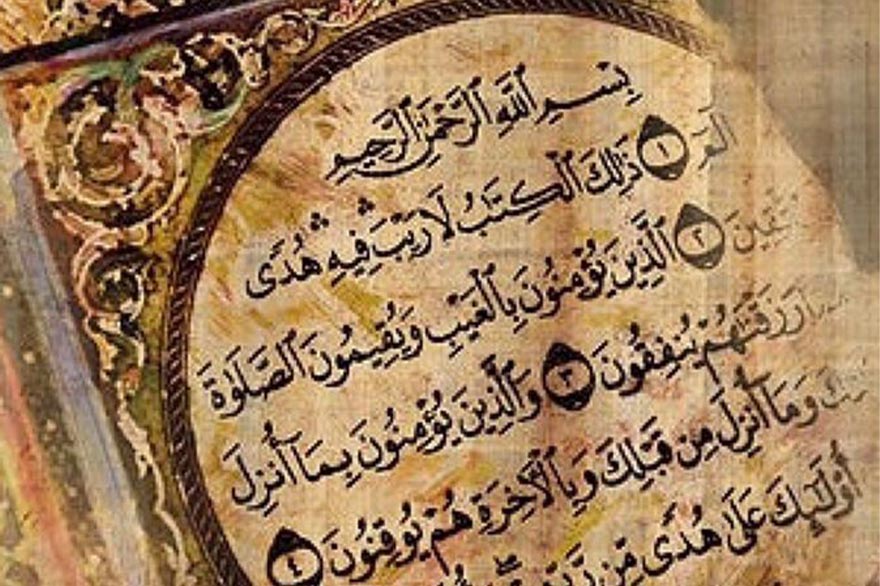 بِسْمِ ٱللَّهِ ٱلرَّحْمَٰنِ ٱلرَّحِيمِ
الٓمٓ ١ ذَٰلِكَ ٱلْكِتَٰبُ لَا رَيْبَ ۛ فِيهِ ۛ هُدًى
ٱلَّذِينَ يُؤْمِنُونَ بِٱلْغَيْبِ وَيُقِيمُونَ ٱلصَّلَوٰةَ ٢
رَزَقْنَٰهُمْ يُنفِقُونَ ٣ وَٱلَّذِينَ يُؤْمِنُونَ بِمَآ أُنزِلَ
وَمَآ أُنزِلَ مِن قَبْلِكَ وَبِٱلْأٓخِرَةِ هُمْ يُوقِنُونَ ٤
أُو۟لَٰٓئِكَ عَلَىٰ هُدًى مِّن